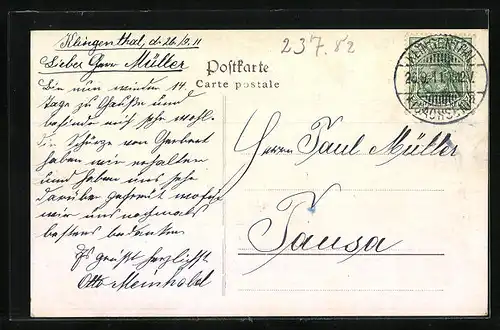 Klingenthal, d. 26/9. 11
237.82
Lieber Herr Müller
Postkarte
Carte postale
Bin nun wieder 14
Tage zu Hause und
befinde mich sehr wohl.
Die Schürze von Herbert
haben wir erhalten
und haben uns sehr
darüber gefreut wofür
wir uns nochmals
bestens bedanken
Es grüßt herzlichst
Otto Meinhold
Herrn Paul Müller
Tausa
KLINGENTHAL
26.9.11